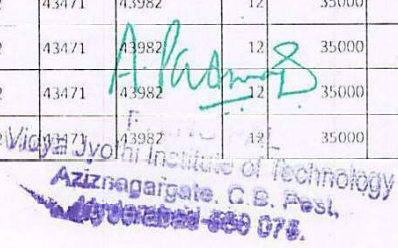 43471 43982 12 35000
43471 43982 12 35000
43471 43982 12 35000
43471 43982 12 35000
Vidya Jyothi Institute of Technology
Aziznagargate, C.B. Post,
Hyderabad-500 075.